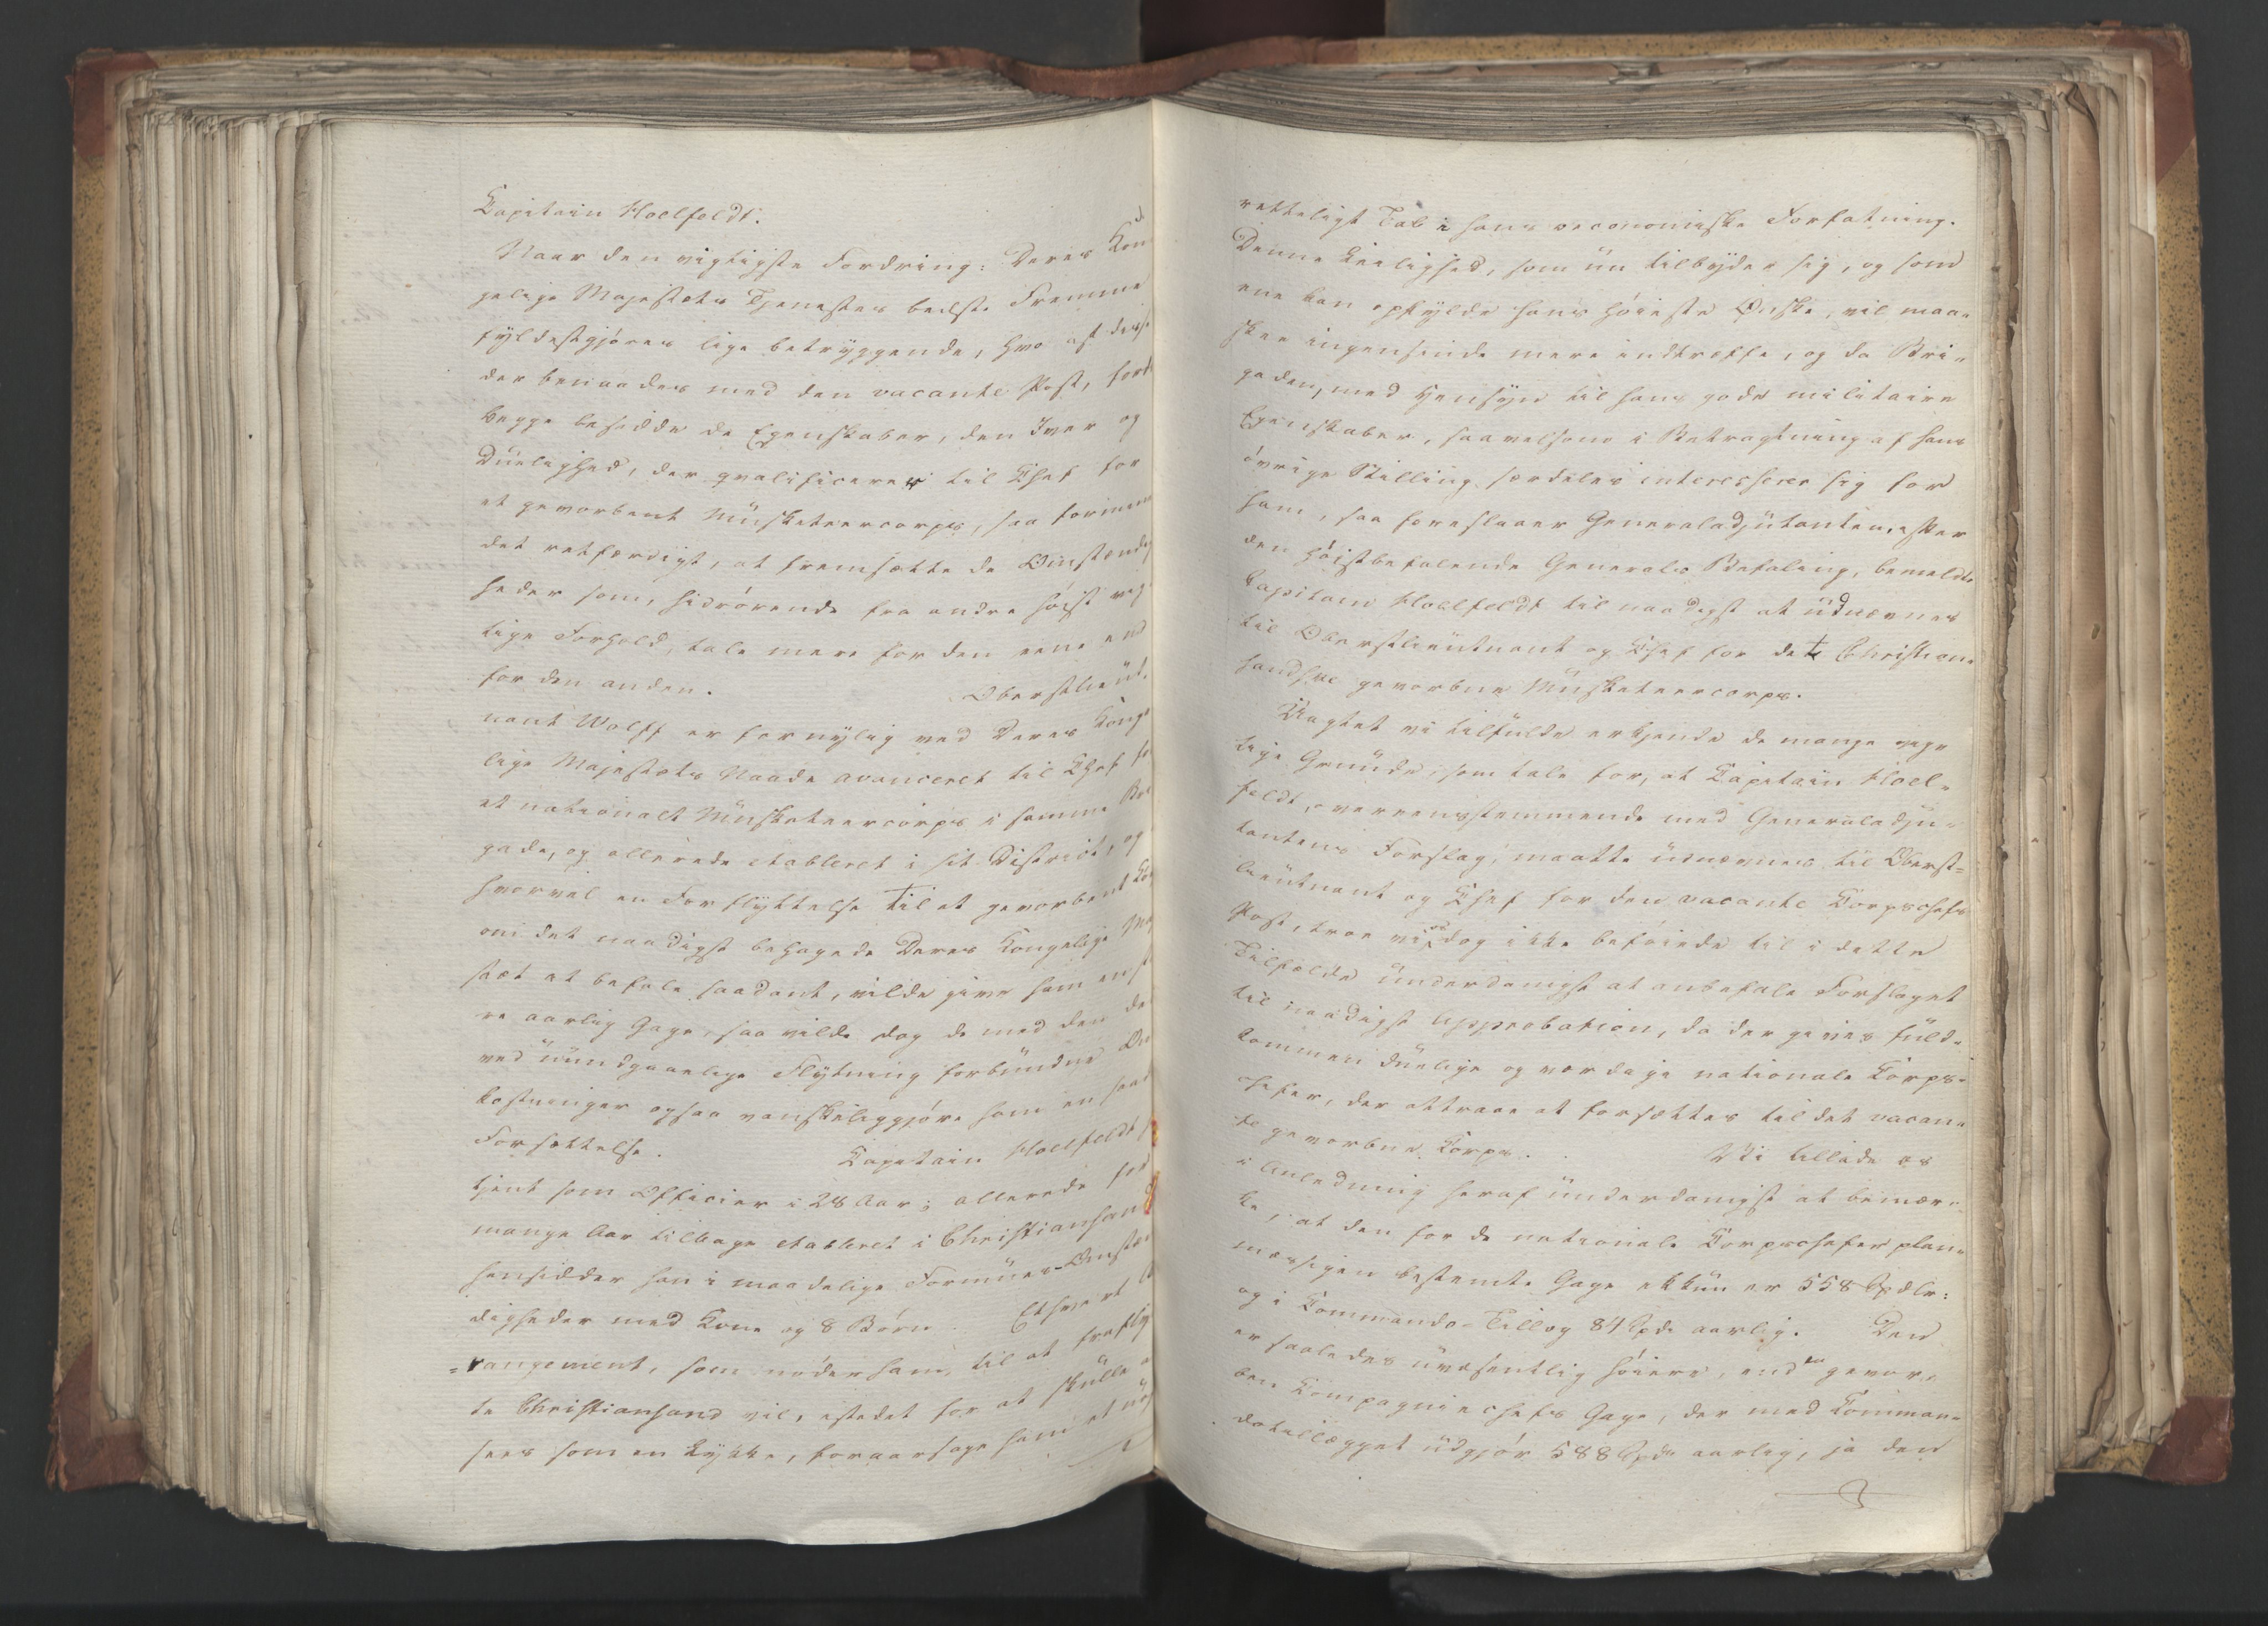 Kapitain Hoelfeldt.
Naar den vigtigste Fordring: Deres Kon
gelige Majestæts Tjenestes bedste Fremme
fyldestgjøres lige betryggende, hvo af disse
der benaades med den vacante Post, fordi
begge besidde de Egenskaber, den Iver og
Duelighed, der qvalificerer til Chef for
et gevorbent Musketeercorps, saa formenes
det retfærdigt, at fremsætte de Omstændig
heder som, hidrørende fra andre høist vig
tige Forhold, tale mere for den eene end
for den anden. Oberstlieut,
nant Wolff er fornylig ved Deres Konge
lige Majestæts Naade avanceret til Chef for
et nationalt Musketeercorps i samme Bri
gade, og allerede etableret i sit District, og
hvorvel en Forflyttelse til et gevorbent Cor
om det naadigst behagede Deres Kongelige Maj
stæt at befale saadant, vilde give ham en stør
re aarlig Gage, saa vilde dog de med den der
ved uundgaaelige Flytning forbundne Om
kostninger ogsaa vanskeliggjøre ham en saad
Forsættelse. Capitain Hoelfeldt h
tjent som Officier i 28 Aar; allerede for
mange Aar tilbage etableret i Christiansand
hensidder han i maadelige Formues-Omstæn
digheder med Kone og 8 Børn. Ethvert A
=rangement, som nøder ham til at fraflyt
te Christiansand vil, istedet for at skulle a
sees som en Lykke, foraarsage ham et uop
retteligt Tab i hans oeconomiske Forfatning.
Denne Leilighed, som nu tilbyder sig, og som
ene kan opfylde hans høieste Ønske, vil maa-
skee ingensinde mere indtræffe, og da Bri-
gaden, med Hensyn til hans gode militaire
Egenskaber, saavelsom i Betragtning af hans
øvrige Stilling særdeles interesserer sig for
ham, saa foreslaaer Generaladjutanten, efter
den høistbefalende Generals Befaling, bemeldte
Capitain Hoelfeldt til naadigst at udnævnes
til Oberstlieutnant og Chef for det Christian-
sandske gevorbne Musketeercorps.
Uagtet vi tilfulde erkjende de mange vigt
tige Grunde, som tale for, at Capitain Hoel-
feldt, overeensstemmende med Generaladju-
tantens Forslag, maatte udnævnes til Oberst-
lieutnant og Chef for den vacante Corpschefs
Post, troe vi os dog ikke beføiede til i dette
Tilfælde underdanigst at anbefale Forslaget
til naadigst Approbation, da der gives fuld-
kommen duelige og værdige nationale Corps-
chefer, der attraae at forsættes til det vacan-
te gevorbne Corps. Vi tillade os
i Anledning heraf underdanigst at bemær-
ke, at den for de nationale Corpschefer plan-
mæssigen bestemte Gage ekkun er 558 Spdlr:
og i Commando-Tillæg 84 Spd. aarlig. Den
er saaledes uvæsentlig høiere, end en gevor-
ben Compagniechefs Gage, der med Comman-
dotillægget udgjør 588 Spd. aarlig, ja den